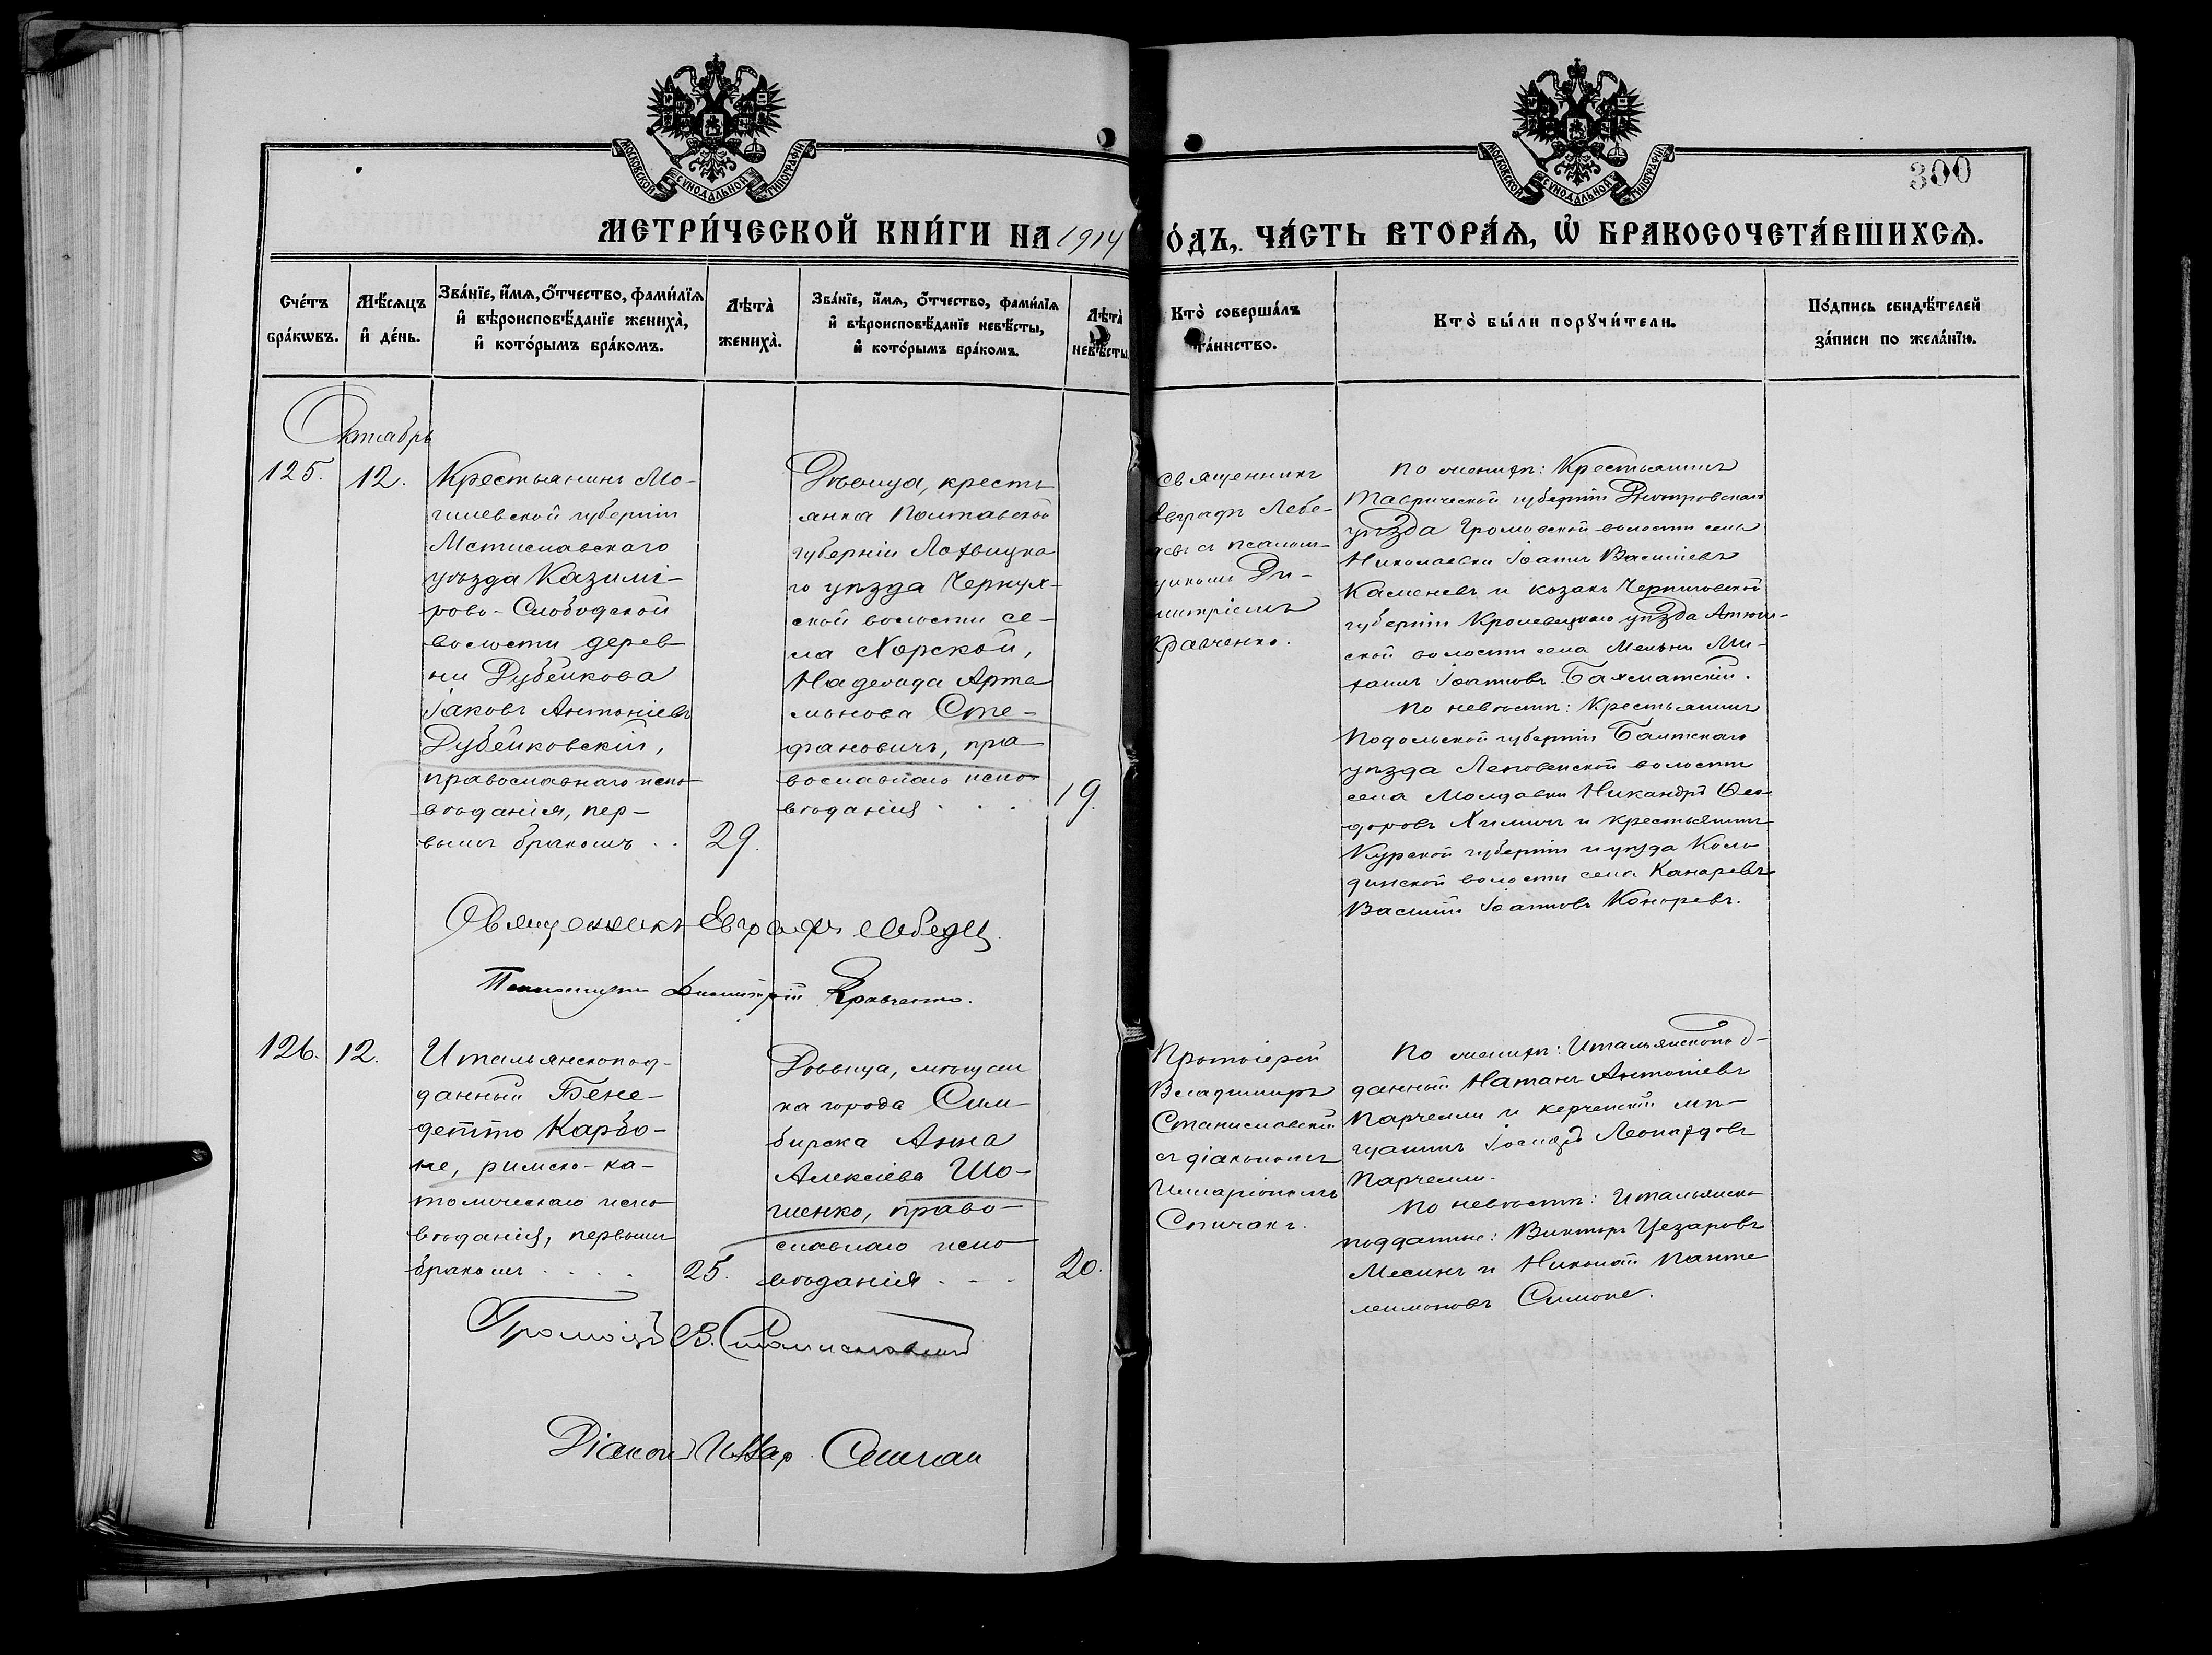 МОСКОВСКОЙ СѴНОДАЛЬНОЙ ТИПОГРАФІИ
МОСКОВСКОЙ СѴНОДАЛЬНОЙ ТИПОГРАФІИ
300
МЕТРИ́ЧЕСКОЙ КНИ́ГИ НА 1914
О́ДЪ, ЧА́СТЬ ВТОРА́Ѧ, Ѡ҆ БРАКОСОЧЕТА́ВШИХСѦ.
Сче́тъ
бра́кѡвъ.
Мѣ́сяцъ
и҆ де́нь.
Зва́нїе, и҆́мѧ, ѻ҆́тчество, фами́лїѧ
и҆ вѣроисповѣ́данїе жениха̀,
и҆ кото́рымъ бра́комъ.
Лѣта̀
жениха̀.
Зва́нїе, и҆́мѧ, ѻ҆́тчество, фами́лїѧ
и҆ вѣроисповѣ́данїе невѣ́сты,
и҆ кото́рымъ бра́комъ.
Лѣта̀
невѣ́сты
Кто̀ соверша́лъ
та́инство.
Кто̀ бы́ли порꙋчи́тели.
По́дпись свидѣ́телей
за́писи по жела́нїю.
Октябрь
125.
12.
Крестьянинъ Мо-
гилевской губерніи
Мстиславскаго
уѣзда Казимі-
рово-Слободской
волости дерев
ни Дубейкова
Іаковъ Антоніевъ
Дубейковскій,
православнаго испо
вѣданія, пер-
вымъ бракомъ . .
29.
Дѣвица, кресть
янка Полтавской
губерніи Лохвицка
го уѣзда Чернух-
ской волости се-
ла Хорской,
Надежда Арта
монова Сте-
фановичъ, пра-
вославнаго испо
вѣданія . . .
19.
Священникъ
Евграфъ Лебе-
девъ съ псалом-
щикомъ Ди-
митріемъ
Кравченко.
По женихѣ: Крестьянинъ
Таврической губерніи Днѣпровскаго
уѣзда Громовской волости села
Николаевки Іоаннъ Василіевъ
Каменевъ и козакъ Черниговской
губерніи Кролевецкаго уѣзда Атюш-
ской волости села Мельни Ми-
хаилъ Іоанновъ Бахматскій.
По невѣстѣ: Крестьянинъ
Подольской губерніи Балтскаго
уѣзда волости
села Молдавки Никандръ Ѳео-
доровъ Химичъ и крестьянинъ
Курской губерніи и уѣзда
волости села Канаревъ
Василій Іоанновъ Коноревъ.
Священникъ Евграфъ Лебедев
Псаломщикъ Димитрій Кравченко.
126.
12.
Итальянскопод-
данный Бене-
детто Карбо-
не, римско-ка-
толическаго испо
вѣданія, первымъ
бракомъ . . . .
25.
Дѣвица, мѣщан
ка города Сим-
бирска Анна
Алексіева Шо-
шенко, право-
славнаго испо
вѣданія . . .
20.
Протоіерей
Владимиръ
Станиславскій
съ діакономъ
Иларіономъ
Спичакъ.
По женихѣ: Итальянскопод-
данный Натанъ Антоніевъ
Парчелли и керченскій мѣ-
щанинъ Іосифъ Леонардовъ
Парчелли.
По невѣстѣ: Итальянско
подданные: Викторъ Цезаровъ
Месинъ и Николай Панте
леимоновъ Симоне.
Протоіерей В. Станиславскій
Діаконъ Иллар. Спичак